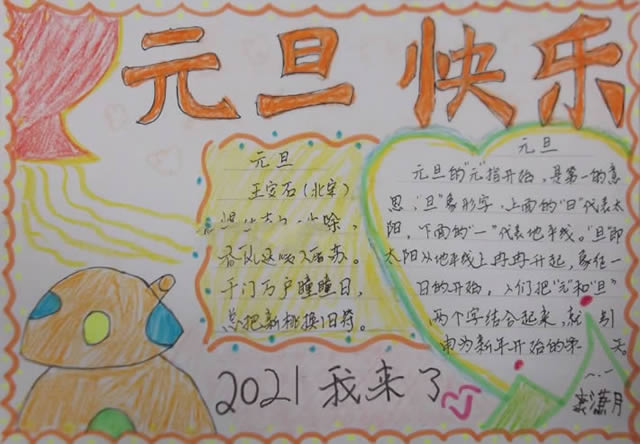 元旦快乐
元旦
王安石(北宋)
除,
春风送暖入屠苏。
千门万户曈曈日,
总把新桃换旧符。
元旦
元旦的“元”指开始,是第一的意
思,“旦”象形字,上面的“日”代表太
阳,下面的“一”代表地平线。“旦”即
太阳从地平线上冉冉升起,象征一
日的开始,人们把“元”和“旦”
两个字结合起来,就
申为新年开始的第 天。
2021我来了
潇月